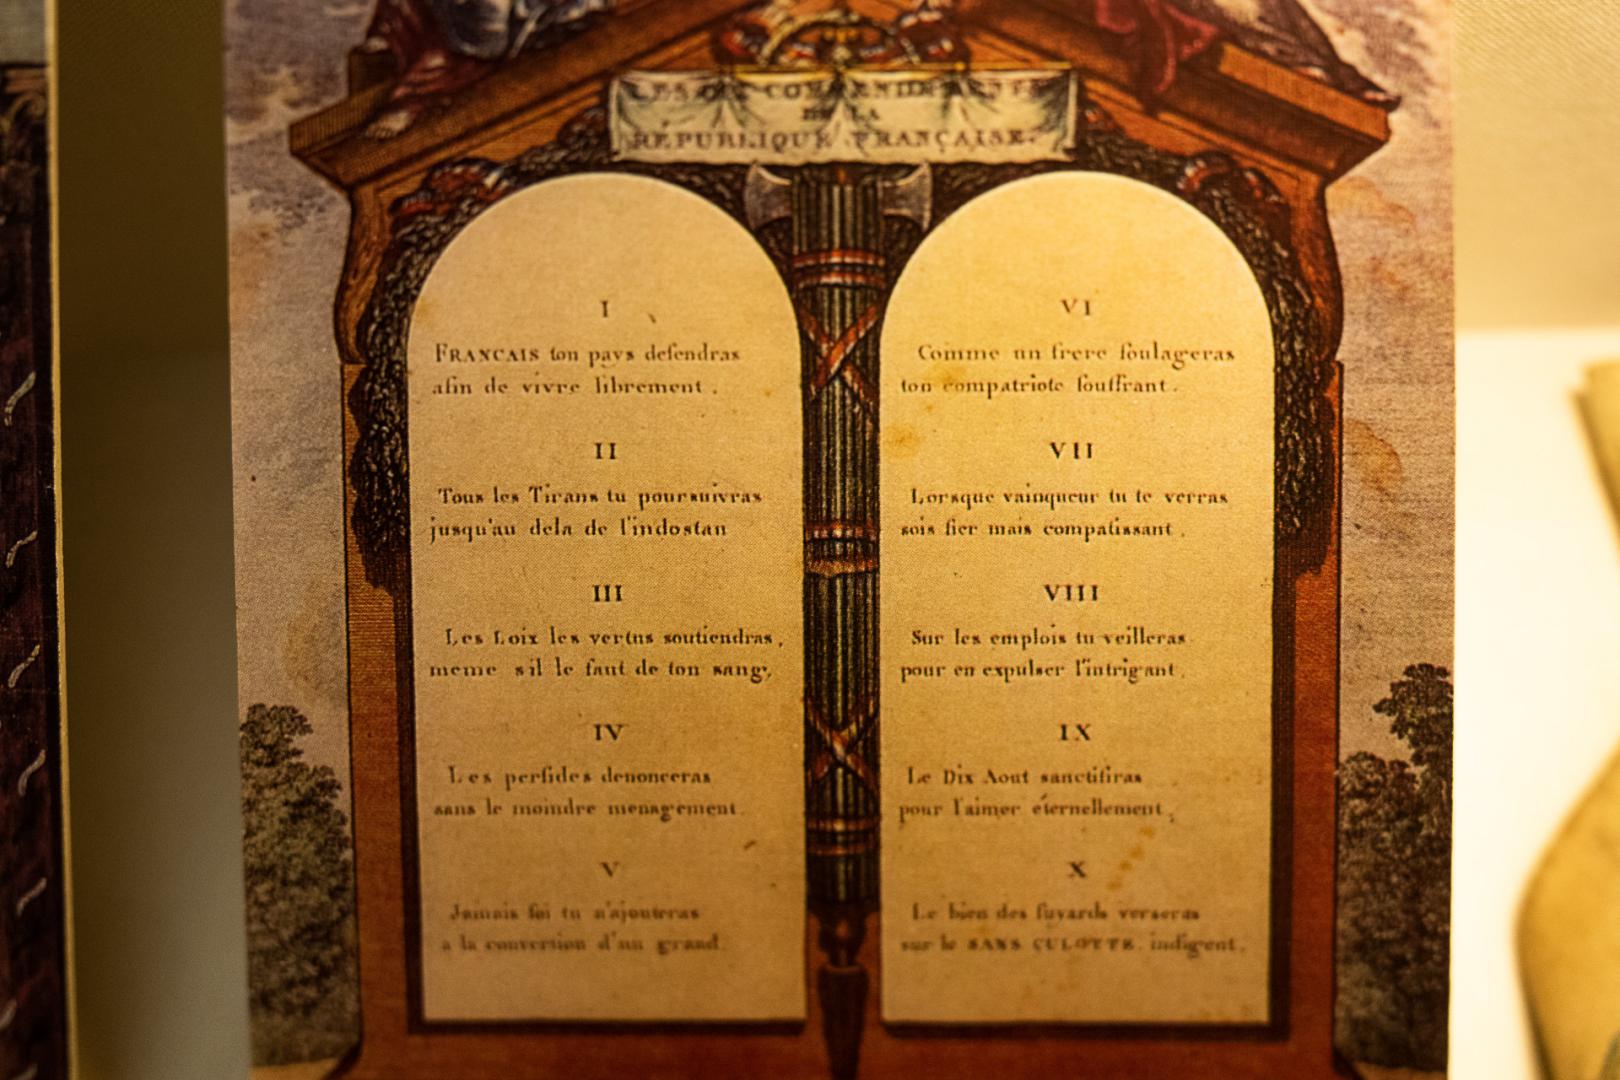 LES DIX COMMANDEMENTS
DE LA
RÉPUBLIQUE FRANÇAISE.
I
FRANCAIS ton pays defendras
afin de vivre librement.
II
Tous les Tirans tu poursuivras
jusqu'au dela de l'indostan
III
Les Loix les vertus soutiendras,
meme s'il le faut de ton sang,
IV
Les perfides denonceras
sans le moindre menagement.
V
Jamais foi tu n'ajouteras
a la conversion d'un grand.
VI
Comme un frere soulageras
ton compatriote souffrant.
VII
Lorsque vainqueur tu te verras
sois fier mais compatissant.
VIII
Sur les emplois tu veilleras
pour en expulser l'intrigant.
IX
Le Dix Aout sanctifiras
pour l'aimer éternellement,
X
Le bien des fuyards verseras
sur le SANS CULOTTE indigent.